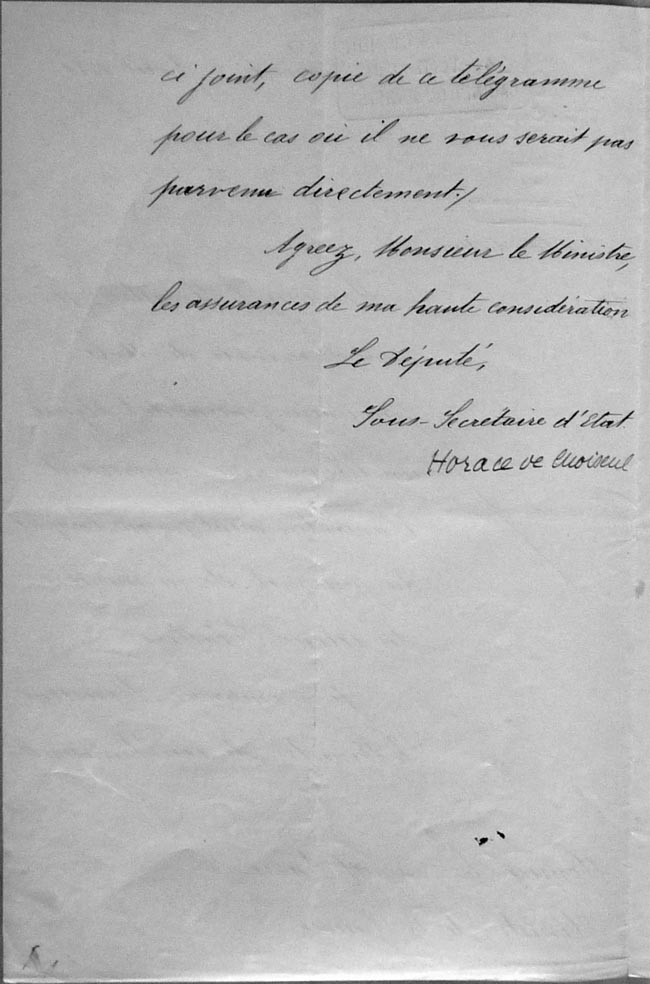 ci joint, copie de ce télégramme
pour le cas où il ne vous serait pas
parvenu directement./
Agreez, Monsieur le Ministre,
les assurances de ma haute considération
Le Député,
Sous-Secrétaire d'Etat
Horace de Choiseul